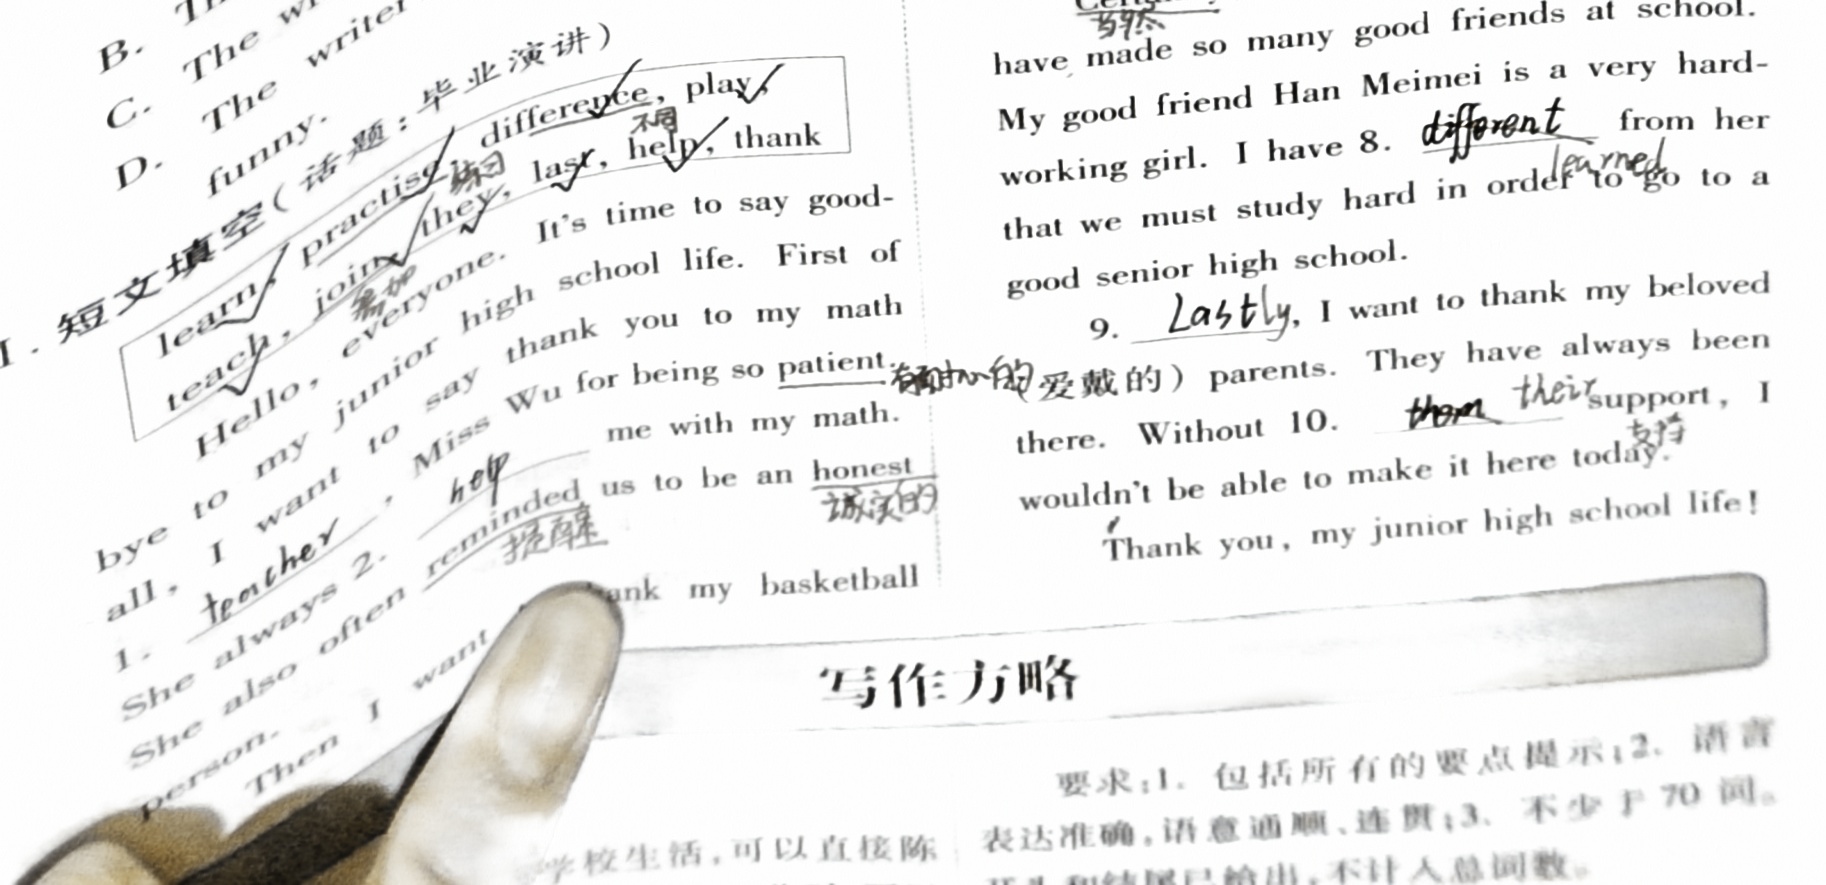 B. Th
C. The wr
D. The writer
funny.
I. 短文填空(话题:毕业演讲)
learn, practise, difference, play,
练习 不同
teach, join, they, last, help, thank
参加
Hello, everyone. It's time to say good-
bye to my junior high school life. First of
all, I want to say thank you to my math
1. teacher, Miss Wu for being so patient.
有耐心的
She always 2. help me with my math.
She also often reminded us to be an honest
提醒 诚实的
person.
Then I want ank my basketball
当然
have made so many good friends at school.
My good friend Han Meimei is a very hard-
working girl. I have 8. different from her
learned
that we must study hard in order to go to a
good senior high school.
9. Lastly, I want to thank my beloved
(爱戴的) parents. They have always been
there. Without 10. them their support, I
支持
wouldn't be able to make it here today.
Thank you, my junior high school life!
写作方略
学校生活,可以直接陈
要求:1. 包括所有的要点提示;2. 语言
表达准确,语意通顺、连贯;3. 不少于 70 词。
开头和结尾已给出,不计入总词数。